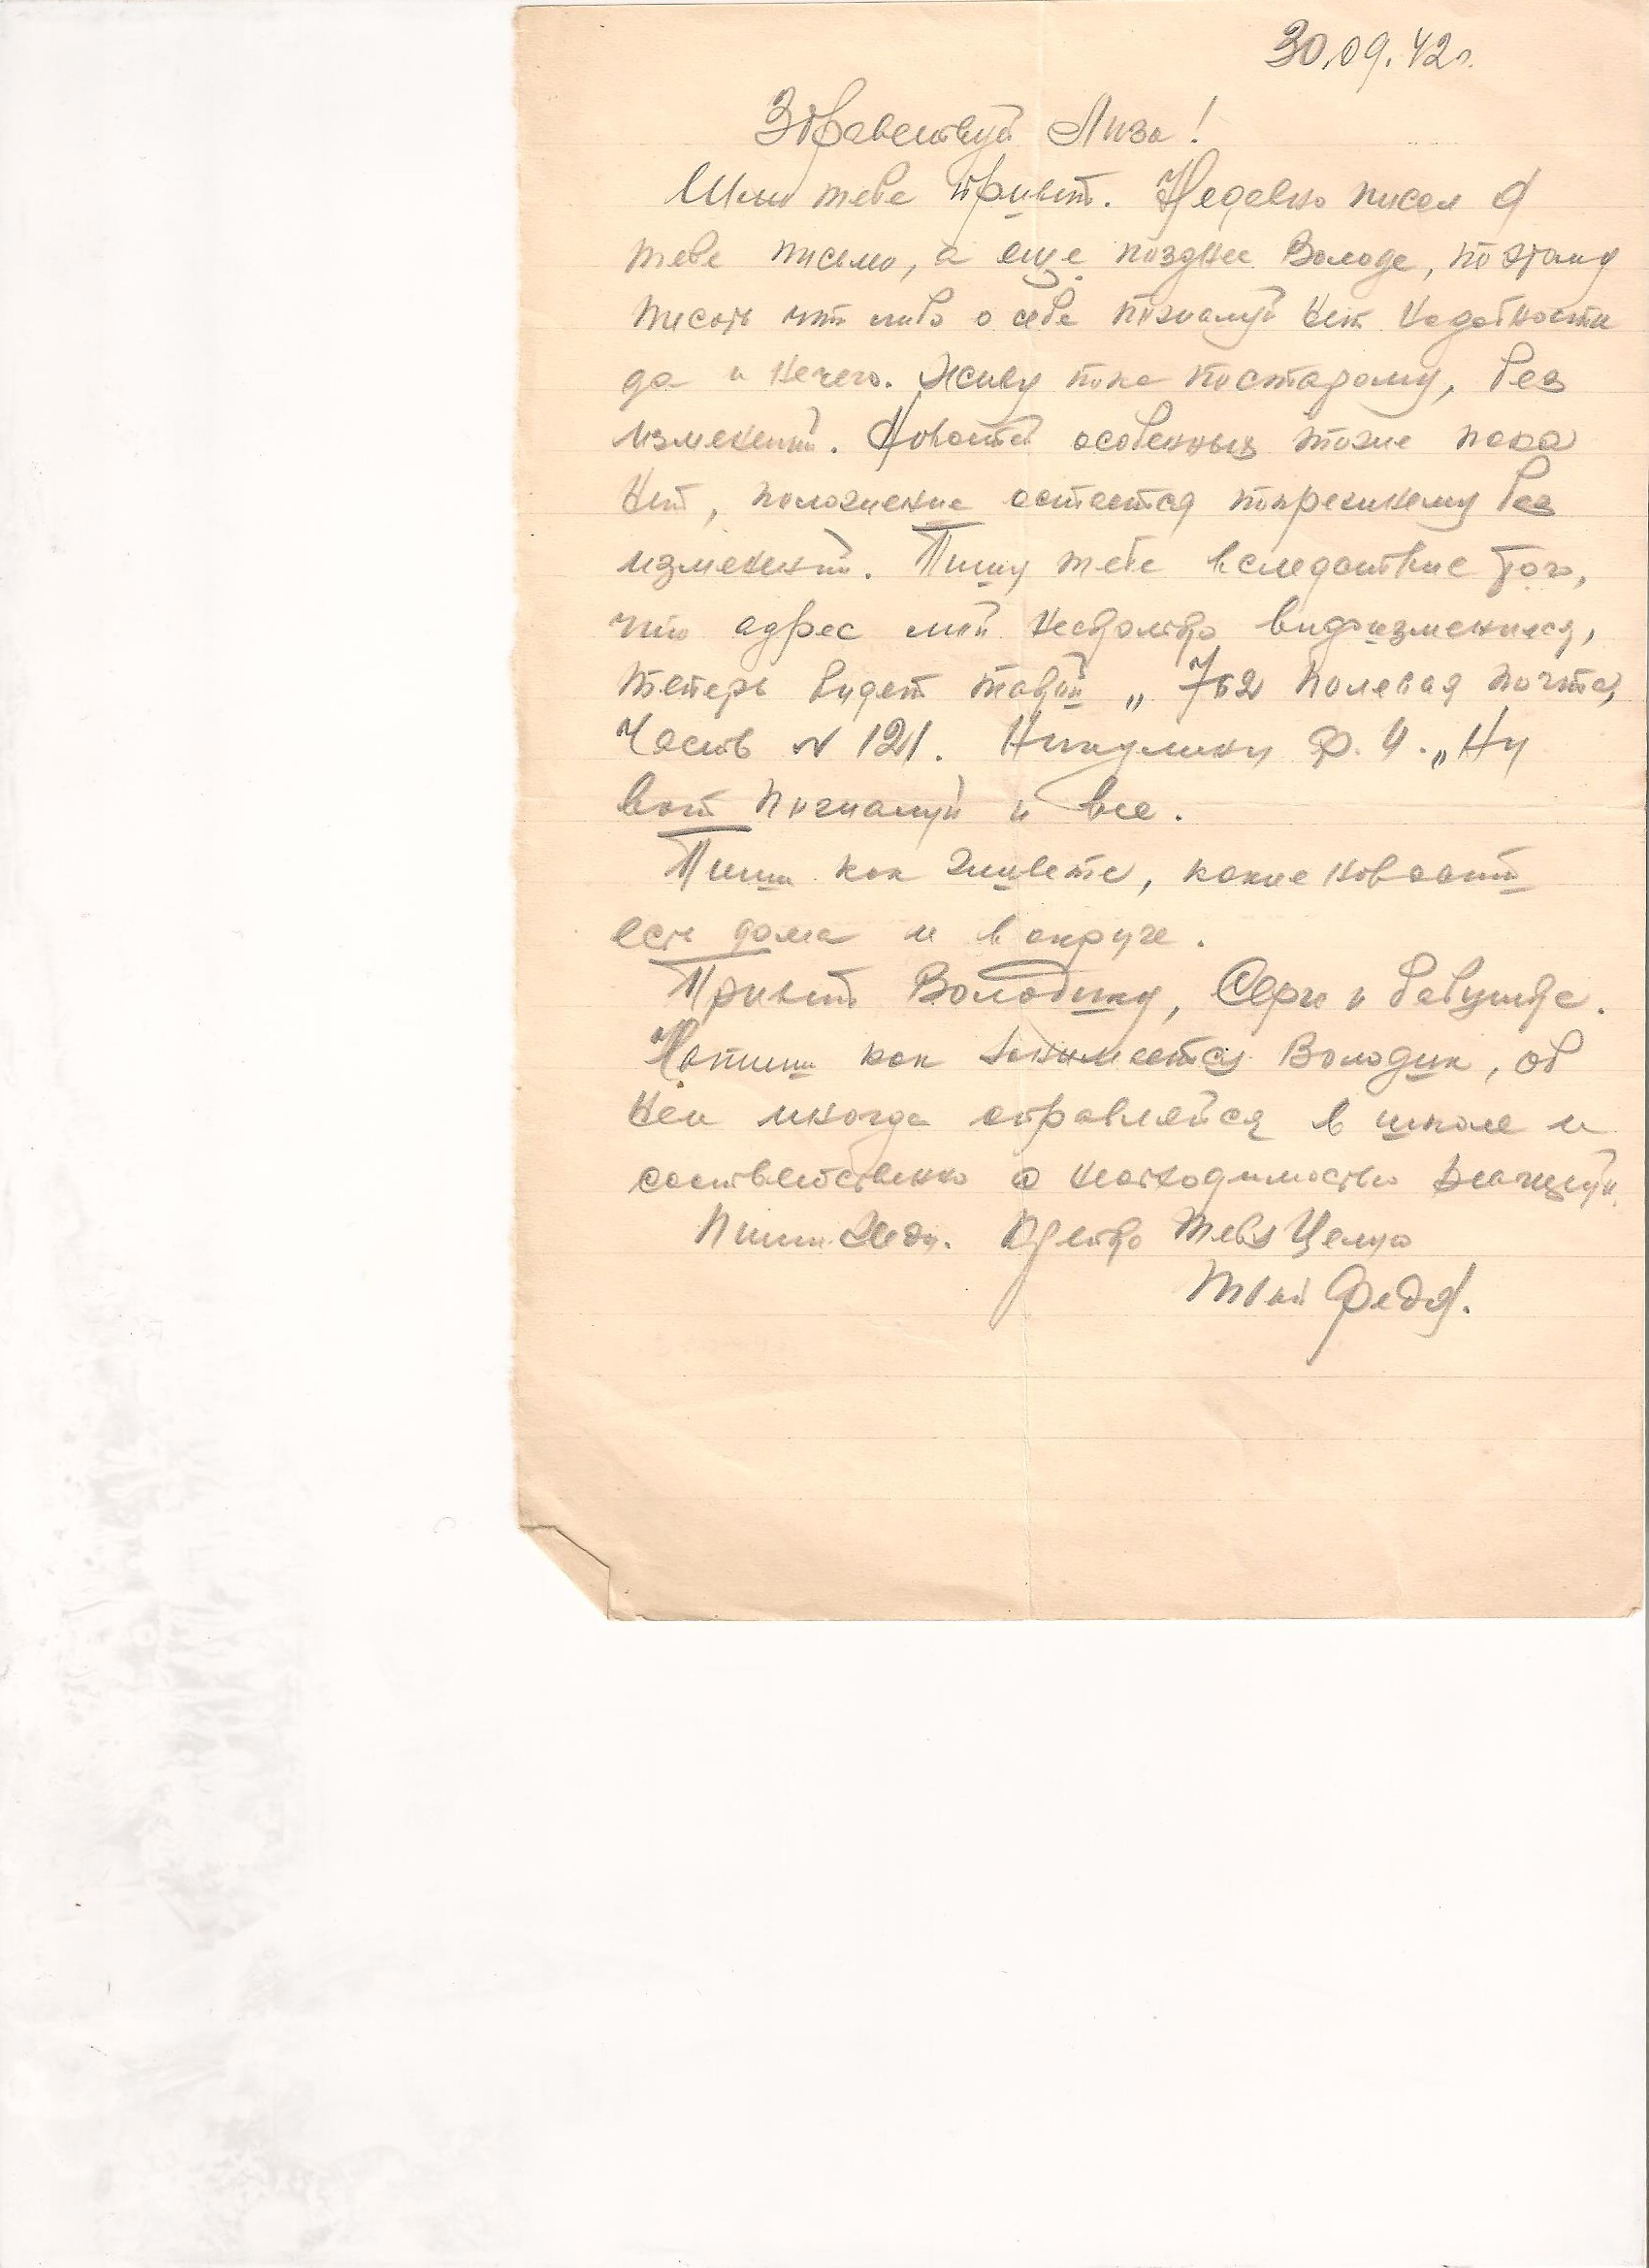 30.09.42г.
Здравствуй Лиза!
Шлю тебе привет. Недавно писал я
тебе письмо, а еще позднее Володе, поэтому
писать что либо о себе пожалуй нет надобности
да и нечего. Живу пока постарому, без
изменений. Новостей особенных тоже пока
нет, положение остается попрежнему без
изменений. Пишу тебе вследствие того,
что адрес мой несколько видоизменился,
теперь будет такой „762 Полевая почта,
Часть № 121. Никулину Ф. И.„ Ну
вот пожалуй и все.
Пиши как живете, какие новости
есть дома и в округе.
Привет Володику, Серге и бабушке.
Напиши как занимается Володик, об
нем иногда справляйся в школе и
соответственно о необходимости
Пиши жду. Крепко тебя целую
Твой Федя.